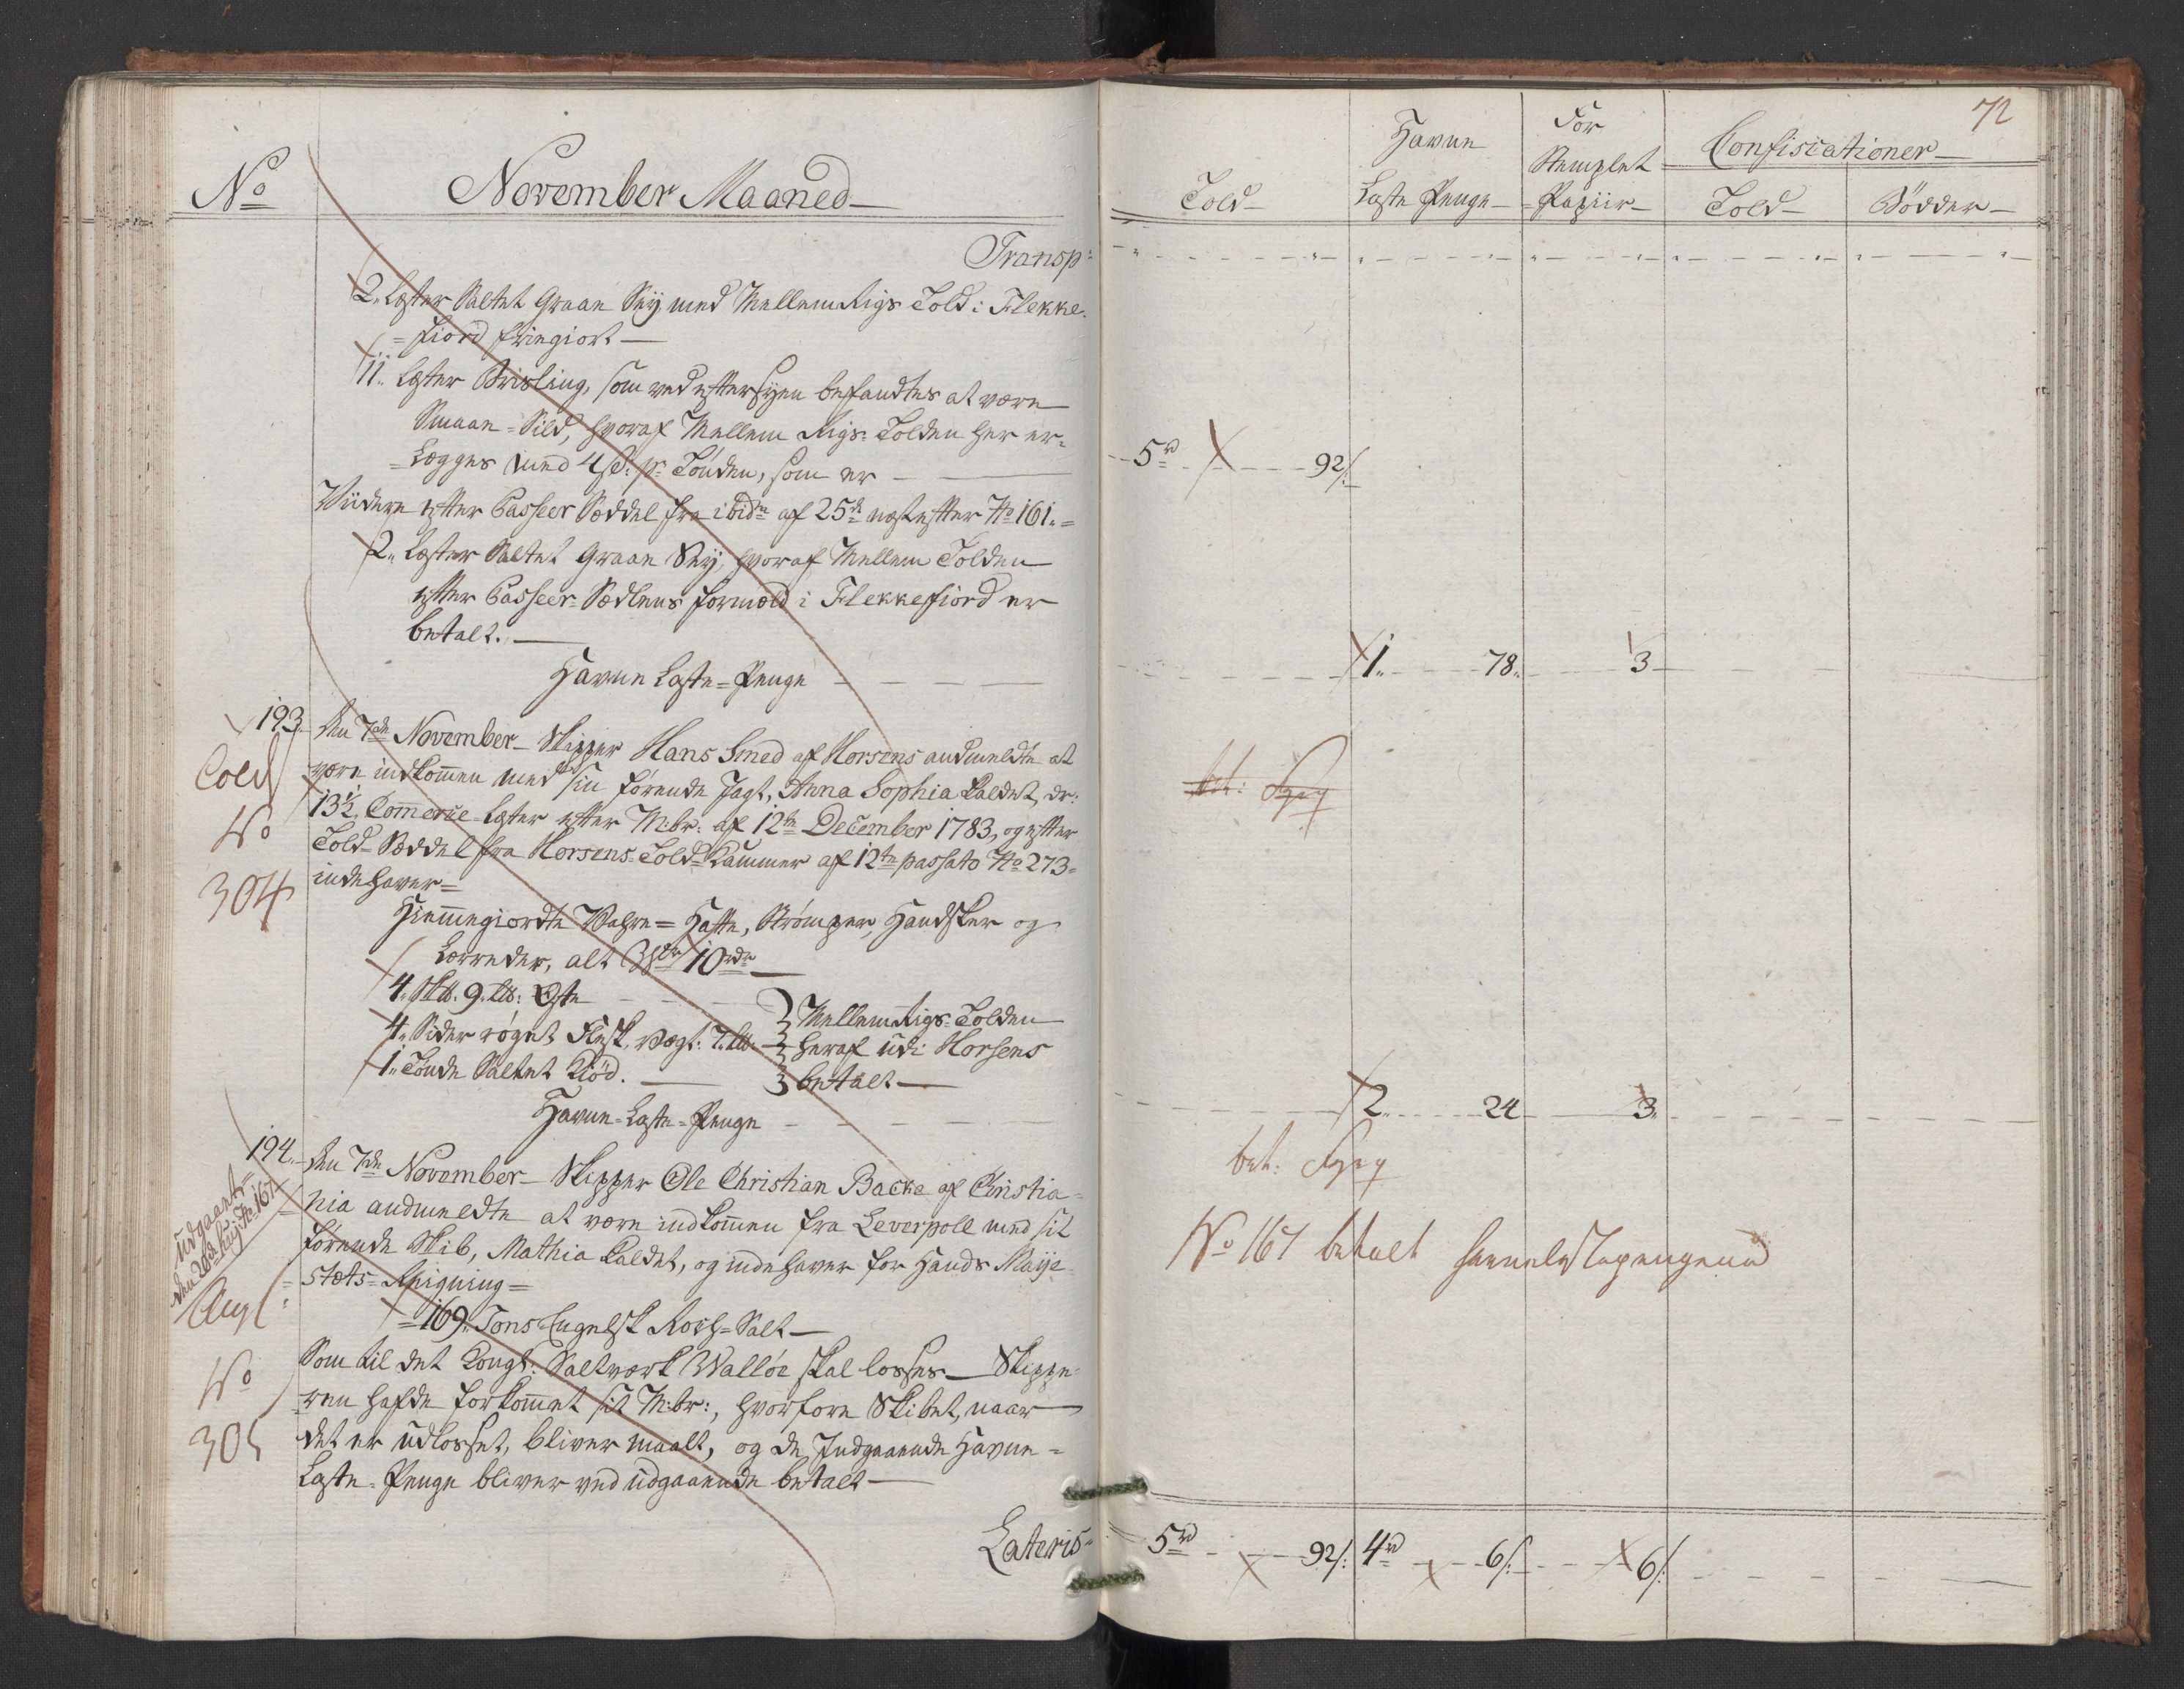 No
November Maaned
Transp:
2. Læster Saltet Graae Sey med Mellem Rigs Told i Flekke-
=fiord friegiort
11. Læster Brisling, som ved Eftersyn befandtes at være
Smaae=Sild, hvoraf Mellem Rigs Tolden her er=
=Lægges med 4 s: pr Tønden, som er
Viidere efter Passeer Seddel fra ibidm af 25de næstefter No 161.=
2. Læster Saltet Graae Sey, hvoraf Mellem Tolden
efter Passeer=Sedlens formeld i Flekkefiord er
betalt.
Havne Læste=Penge
193. Den 7de November Skipper Hans Smed af Horsens anmeldte at
være indkommen med sin førende Jagt, Anna Sophia kaldet, dr:
13½ Commerce=Læster efter M:br: af 12te December 1783, og efter
Told=Seddel fra Horsens Told=Kammer af 12te passato No 273=
indehaver=
Hiemmegiordte Vahre= Hatte, Strømper, Handsker og
Lærreder, alt 10rdr
4. Sk℔. 9. L℔: Oste
4. Sider røget Flesk, Vægt: 7. L℔.
1. Tønde Saltet Kiød.
Mellem Rigs Tolden
heraf udi Horsens
betalt
Havne=Læste=Penge
Told
No
304
194. Den 7de November Skipper Ole Christian Backe af Christia=
nia anmeldte at være indkommen fra Leverpoll med sit
førende Skib, Mathia kaldet, og indehaver for Hands Maye=
=stæts Reigning=
=169. Tons Engelsk Roch=Salt
Som til det Kongl: Saltværk Walløe skal losses Skippe=
=ren hafde forkommet sit M:br:, hvorfore Skibet, naar
det er udlosset, bliver maalt, og de Indgaaende Havne=
Læste=Penge bliver ved udgaaende betalt
Udgaaet
den 20de huj: No 167
Ang:
No
305
Lateris
72
Told
Havne
Læste Penge
For
Stemplet
Papiir
Confiscationer
Told
Bødder
5rd 92s:
1. 78. 3
bet:
2. 24 3.
bet:
No 167 betalt havnelæstepengene
5rd 92s: 4rd 6s: 6s: